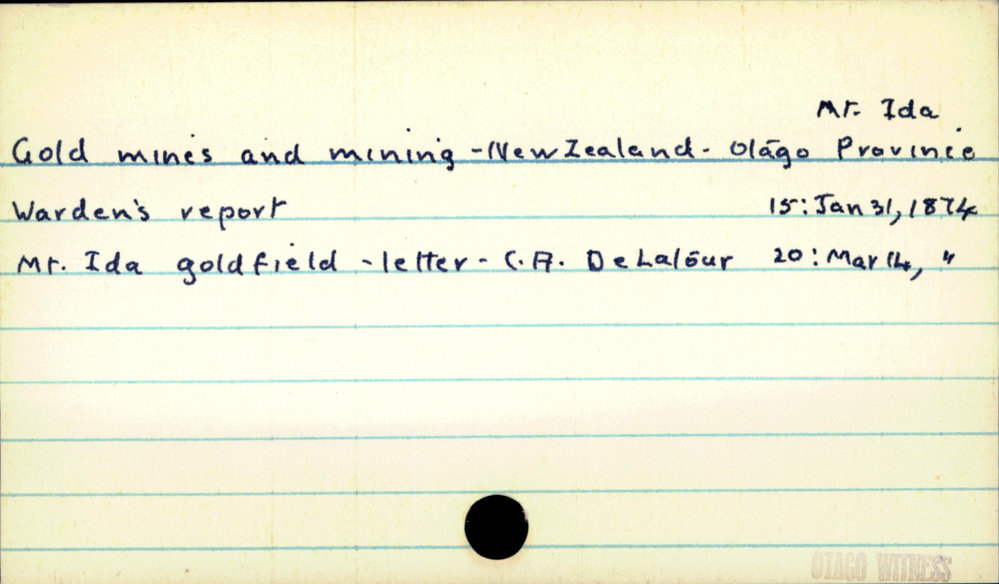 Mt. Ida
Gold mines and mining - New Zealand - Otago Province
Warden's report 15: Jan 31, 1874
Mt. Ida goldfield - letter - C.A. De Latour 20: Mar 14, "
OTAGO WITNESS